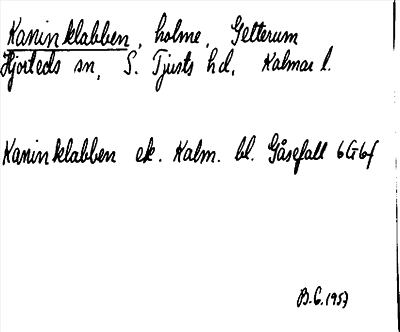 Kaninklabben, holme, Getterum
Hjorteds sn, S. Tjusts hd, Kalmar l.
Kaninklabben ek. Kalm. bl. Gåsefall 6G6f
B.G. 1957